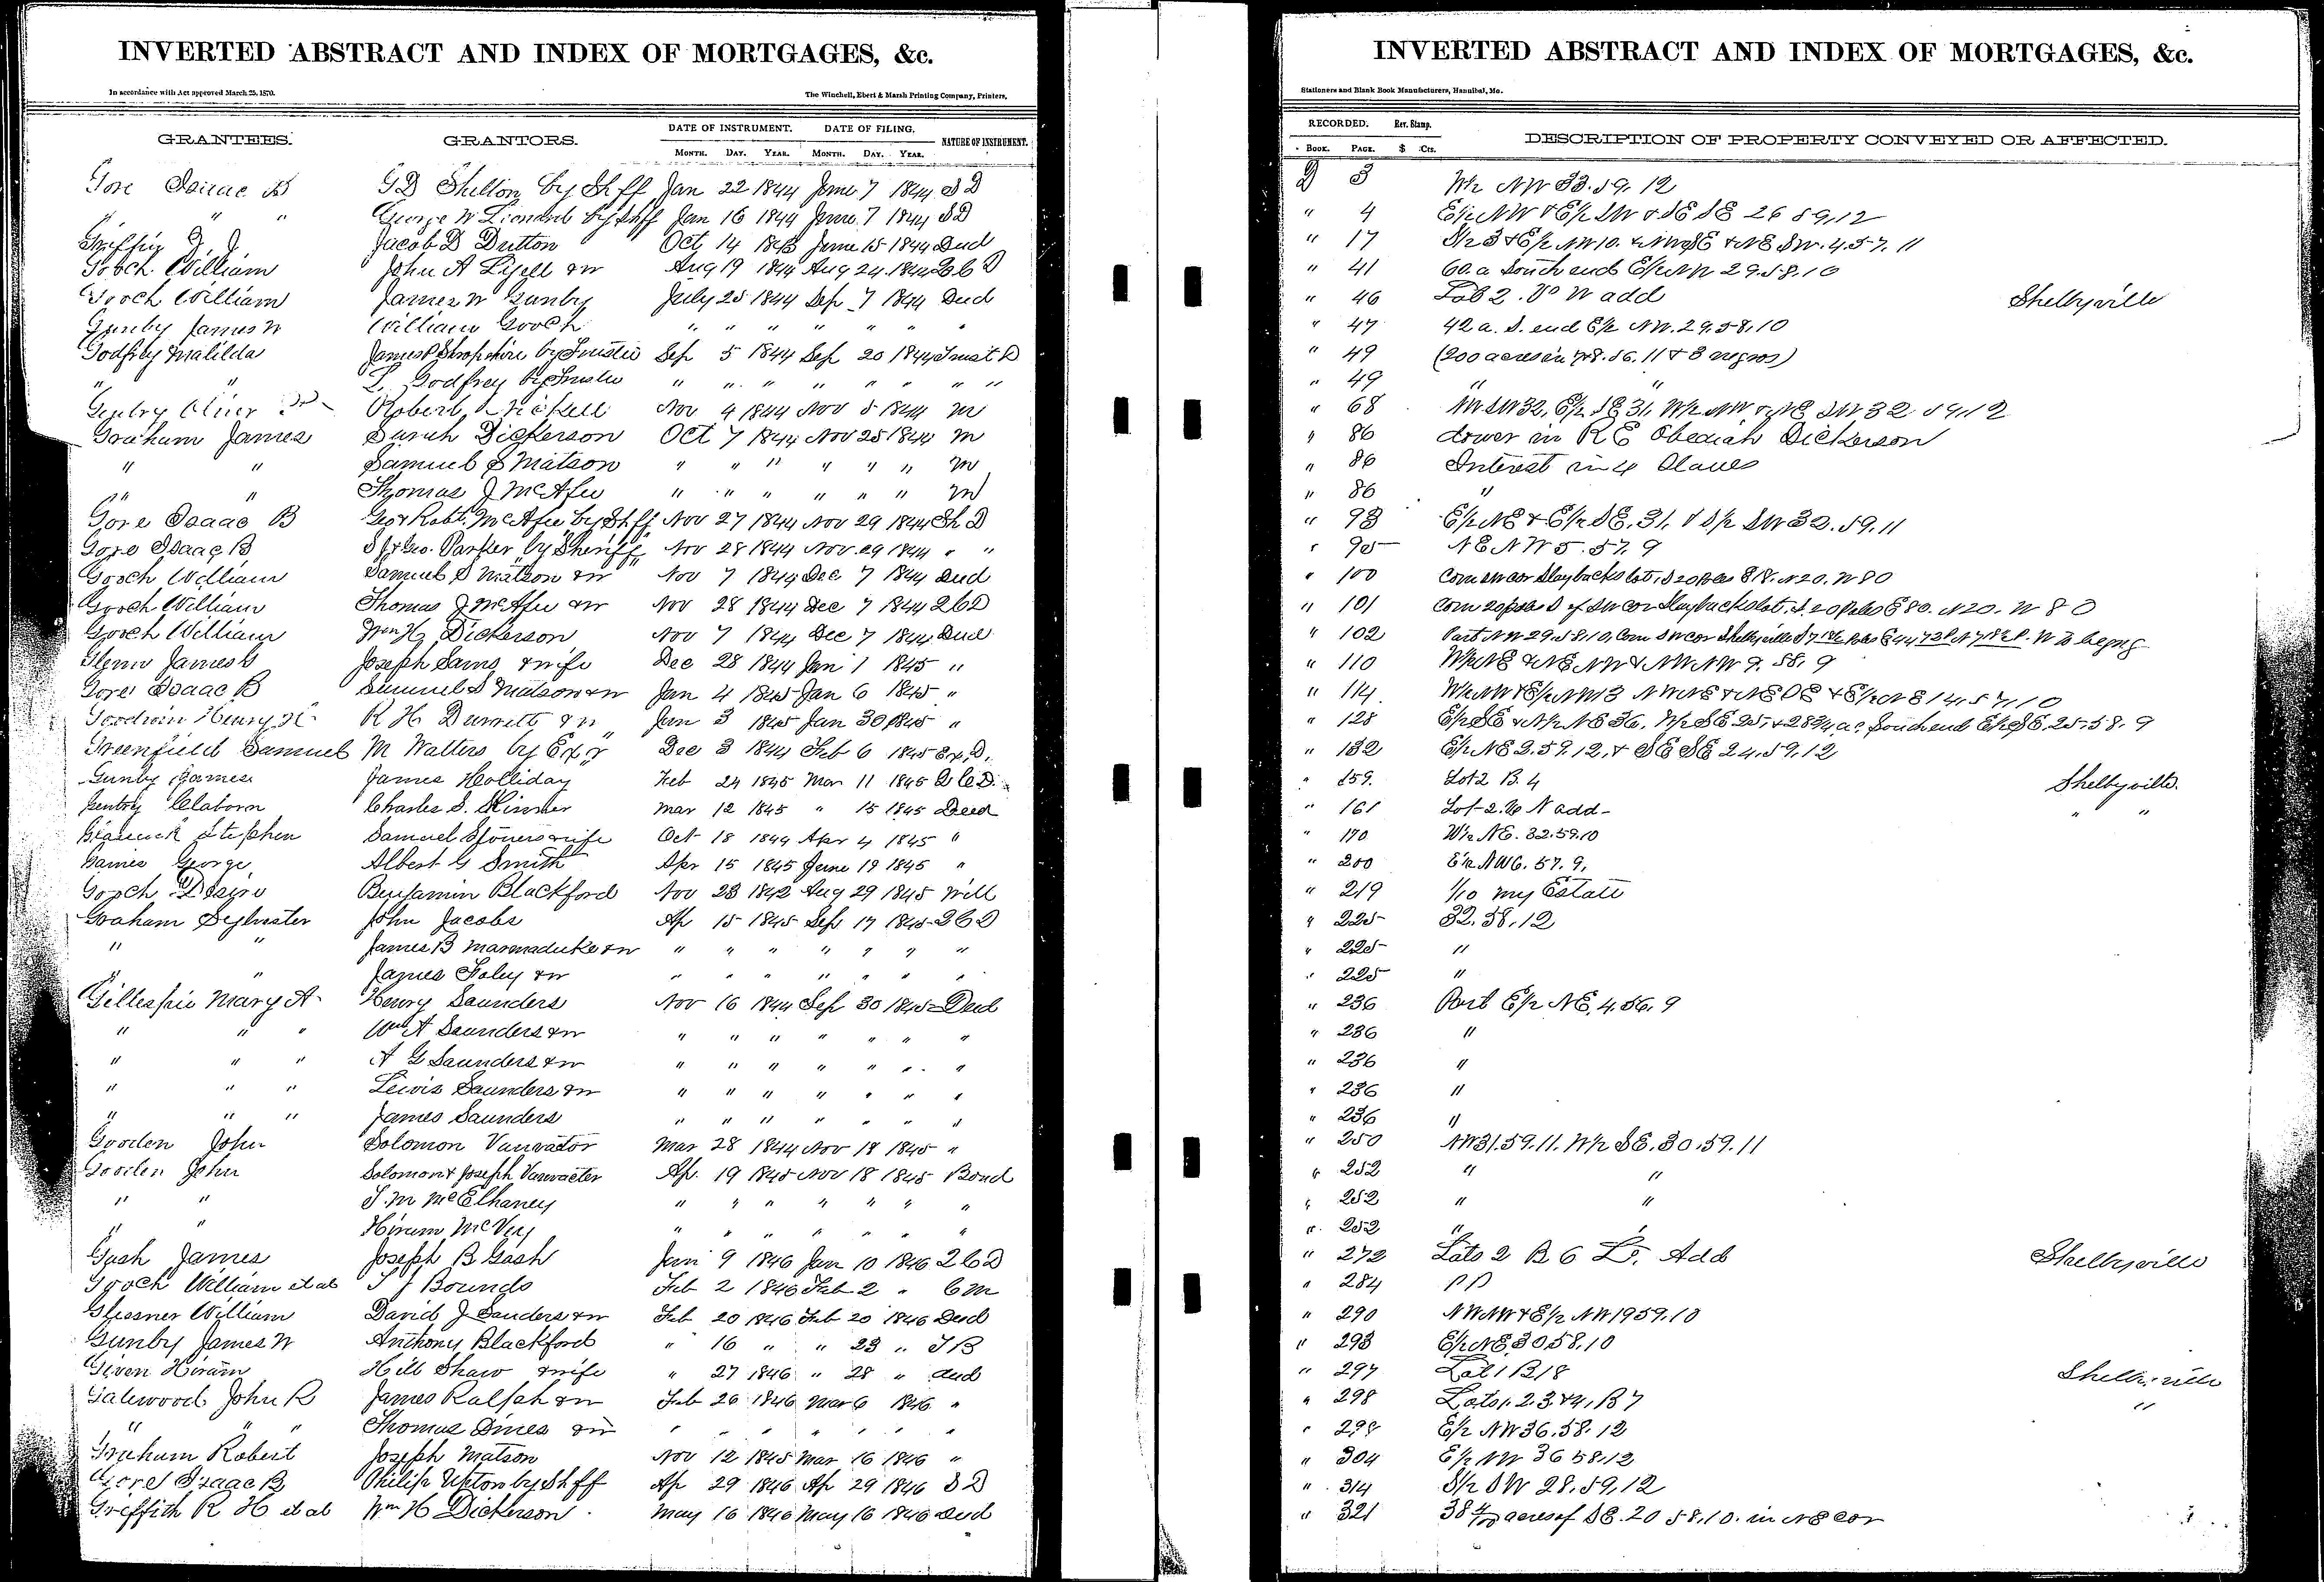 INVERTED ABSTRACT AND INDEX OF MORTGAGES, &c.
In accordance with Act approved March 25, 1870.
The Winchell, Ebert & Marsh Printing Company, Printers,
GRANTEES. GRANTORS. DATE OF INSTRUMENT. DATE OF FILING. NATURE OF INSTRUMENT.
MONTH. DAY. YEAR. MONTH. DAY. YEAR.
Gore Isaac B G D Shelton by Shff Jan 22 1844 June 7 1844 S D
" " George W Leonard by Shff Jan 16 1844 June 7 1844 S D
Griffin Jacob D Dutton Oct 14 1843 June 15 1844 Deed
Gooch William John A Lyell & w Aug 19 1844 Aug 24 1844
Gooch William James W Gunby July 25 1844 Sep 7 1844 Deed
Gunby James W William Gooch " " " " " " "
Godfrey Matilda James P Shropshire by Trustee Sep 5 1844 Sep 20 1844 Trust D
" " L. Godfrey by Trustee " " " " " " " "
Gentry Oliver Robert Nov 4 1844 Nov 5 1844 M
Graham James Sarah Dickerson Oct 7 1844 Nov 25 1844 M
" " Samuel S Matson " " " " " " M
" " Thomas J McAfee " " " " " " M
Gore Isaac B Geo & Robt. McAfee by Shff Nov 27 1844 Nov 29 1844 Sh D
Gore Isaac B Geo. Parker by Sheriff Nov 28 1844 Nov. 29 1844 " "
Gooch William Samuel S Matson & w Nov 7 1844 Dec 7 1844 Deed
Gooch William Thomas J McAfee & w Nov 28 1844 Dec 7 1844 2 C D
Gooch William Wm H Dickerson Nov 7 1844 Dec 7 1844 Deed
Glenn James Joseph Sams & wife Dec 28 1844 Jan 1 1845 "
Gore Isaac B Samuel S Matson & w Jan 4 1845 Jan 6 1845 "
Goodwin Henry H R H Durrett & w Jan 3 1845 Jan 30 1845 "
Greenfield Samuel M Watters by Exr Dec 3 1844 Feb 6 1845 Ex, D,
Gunby James James Holliday Feb 24 1845 Mar 11 1845
Gentry Claborn Charles S. Skinner Mar 12 1845 " 15 1845 Deed
Stephen Samuel S Jones & wife Oct 18 1844 Apr 4 1845 "
Gaines George Albert G Smith Apr 15 1845 June 19 1845 "
Gooch Benjamin Blackford Nov 23 1842 Aug 29 1845 Will
Graham Sylvester John Jacobs Ap 15 1845 Sep 17 1845 2 C D
" " James B Marmaduke & w " " " " " " "
" James Foley & w " " " " " " "
Gillespie Mary A Henry Saunders Nov 16 1844 Sep 30 1845 Deed
" " " Wm A Saunders & w " " " " " " "
" " " A G Saunders & w " " " " " " "
" " " Lewis Saunders & w " " " " " " "
" " " James Saunders " " " " " " "
Gooden John Solomon Vanvactor Mar 28 1844 Nov 18 1845 "
Gooden John Solomon & Joseph Vanvacter Ap. 19 1845 Nov 18 1845 Bond
" " McElhaney " " " " " " "
" " Hiram McVey " " " " " " "
Gash James Joseph B Gash Jan 9 1846 Jan 10 1846 2 C D
Gooch William et al Bounds Feb 2 1846 Feb 2 " C M
Glessner William David J Sanders & w Feb 20 1846 Feb 20 1846 Deed
Gunby James W Anthony Blackford " 16 " " 23 "
Given Hiram Hill Shaw & wife " 27 1846 " 28 " Deed
Gatewood John R James Ralph & w Feb 26 1846 Mar 6 1846 "
" " Thomas Dines & w " " " " " " "
Graham Robert Joseph Matson Nov 12 1845 Mar 16 1846 "
Gore Isaac B Philip Upton by Shff Ap 29 1846 Ap 29 1846 S D
Griffith R H et al Wm H Dickerson May 16 1846 May 16 1846 Deed
INVERTED ABSTRACT AND INDEX OF MORTGAGES, &c.
Stationers and Blank Book Manufacturers, Hannibal, Mo.
RECORDED. Rev. Stamp. DESCRIPTION OF PROPERTY CONVEYED OR AFFECTED.
BOOK. PAGE. $ Cts.
D 3 W½ NW 33.59.12
" 4 E½ NW & E½ SW & SE SE 26 59,12
" 17 & E½ NW 10. & NW SE & NE SW. 4.57.11
" 41 60 a South end E½ NW 29.58.10
" 46 Lot 2. W add Shelbyville
" 47 42 a. S. end E½ NW. 29.58,10
" 49 (200 acres in 56.11 & 3 negros)
" 49 " "
" 68 SW 32, E½ SE 31, W½ NW & NE SW 32 59.12
" 86 dower in R E Obediah Dickerson
" 86 Interest in 4 Slaves
" 86 "
" 93 E½ NE & E½ SE, 31, & S½ SW 32.59.11
" 95 NE NW 5.57.9
" 100 Com SW cor Slaybacks lot, S 20 poles E 18. N 20. W 80
" 101 Com 20 poles S of SW cor Slaybacks lot. S. 20 Poles E 80. N 20. W 80
" 102 Part NW 29.58.10, Com SW cor Shelbyville W to begng
" 110 W½ NE & NE NW & NW NW 9.58.9
" 114 W½ NW & E½ NW 13 NW NE & NE SE & E½ NE 14.57.10
" 128 E½ SE & N½ NE 36. W½ SE 25, & 28¾ a. South end E½ SE, 25.58.9
" 132 E½ NE 3.59.12, & SE SE 24.59.12
" 159. Lot 2 B. 4 Shelbyville.
" 161 Lot 2. N add " "
" 170 W½ NE. 32.59.10
" 200 E½ NW 6. 57.9,
" 219 1/10 my Estate
" 225 32.58.12
" 225 "
" 225 "
" 236 Part E½ NE, 4,56,9
" 236 "
" 236 "
" 236 "
" 236 "
" 250 NW 31.59.11. W½ SE. 30.59.11
" 252 " "
" 252 " "
" 252 " "
" 272 Lots 2 B 6 Add Shelbyville
" 284 PP
" 290 NW NW & E½ NW 19 59.10
" 293 E½ NE 30 58.10
" 297 Lot 1 B 18 Shelbyville
" 298 Lots 1. 2. 3 & 4, B 7 "
" 298 E½ NW 36.58.12
" 304 E½ NW 36 58.12
" 314 S½ SW 28.59,12
" 321 acres of SE. 20 58.10. in NE cor